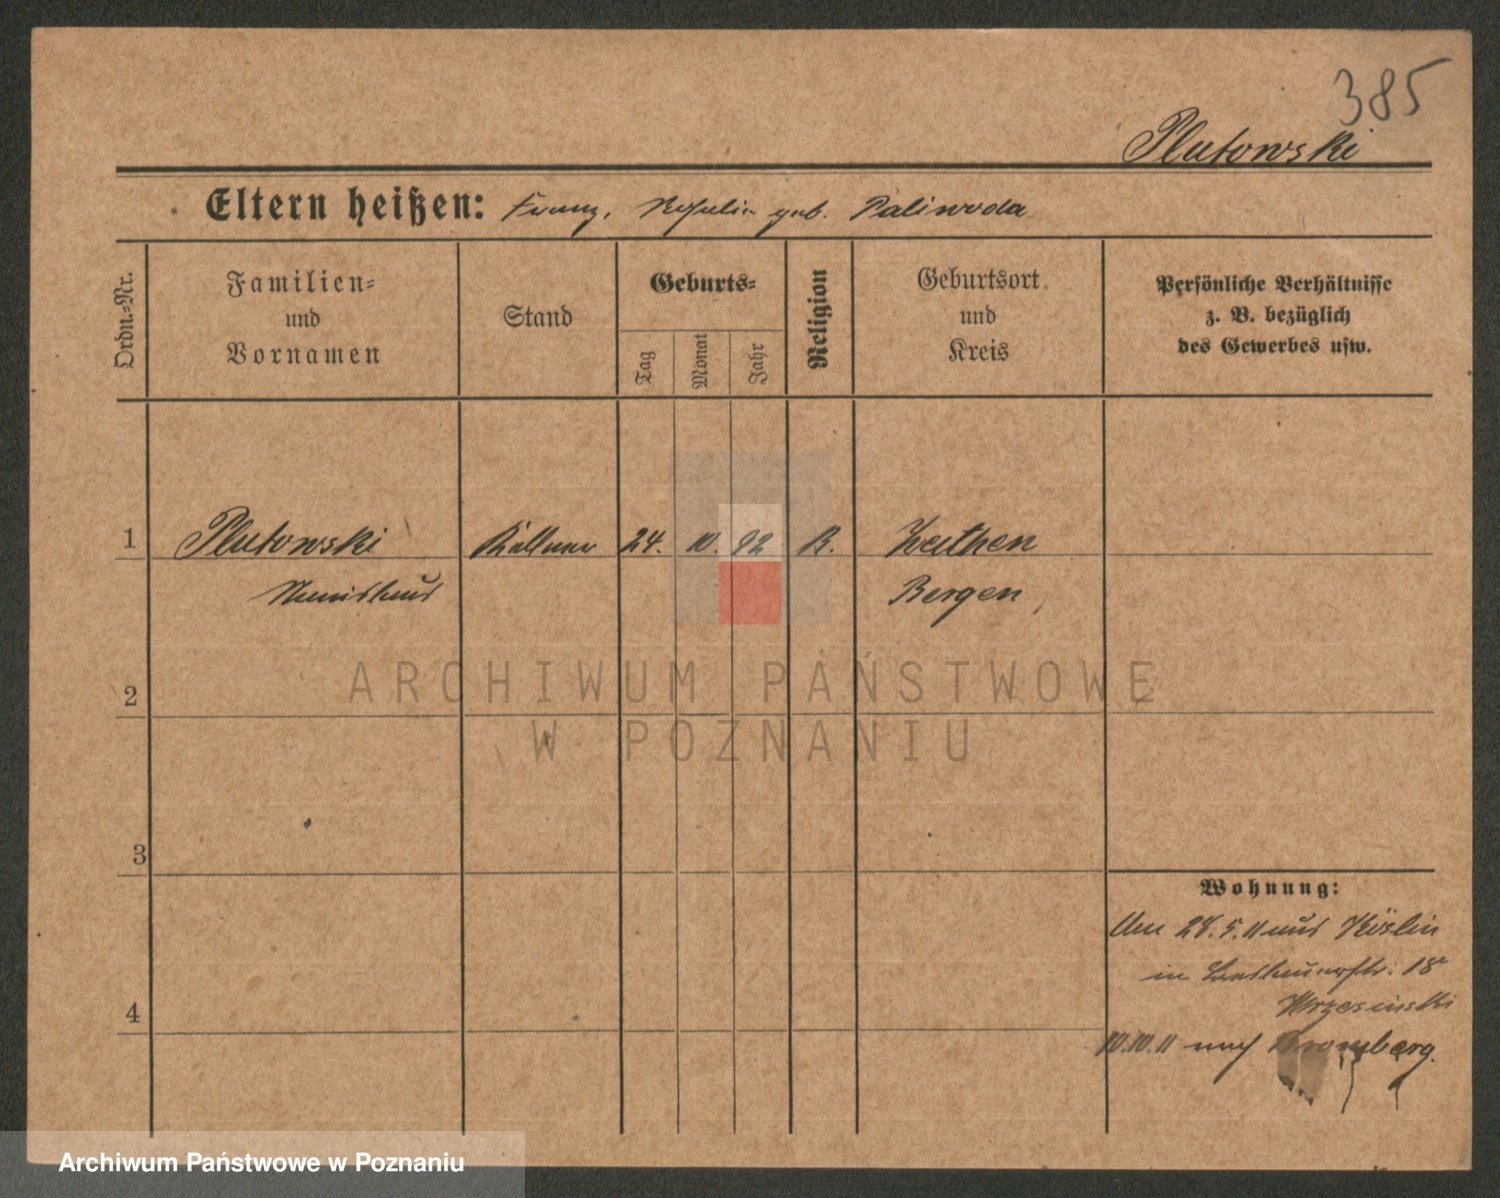 385
Plutowski
Eltern heißen: Franz, geb. Paliwoda
Ordn.-Nr.
Familien-
und
Vornamen
Stand
Geburts-
Tag
Monat
Jahr
Religion
Geburtsort
und
Kreis
Persönliche Verhältnisse
z. B. bezüglich
des Gewerbes usw.
1 Plutowski Kellner 24. 10. 92 K.
Stanislaus Bergen
2
3
Wohnung:
Am 28.5.11 aus Köslin
in 18
Wrzesinski
4
10.10.11 nach Bromberg.
ARCHIWUM PAŃSTWOWE
W POZNANIU
Archiwum Państwowe w Poznaniu